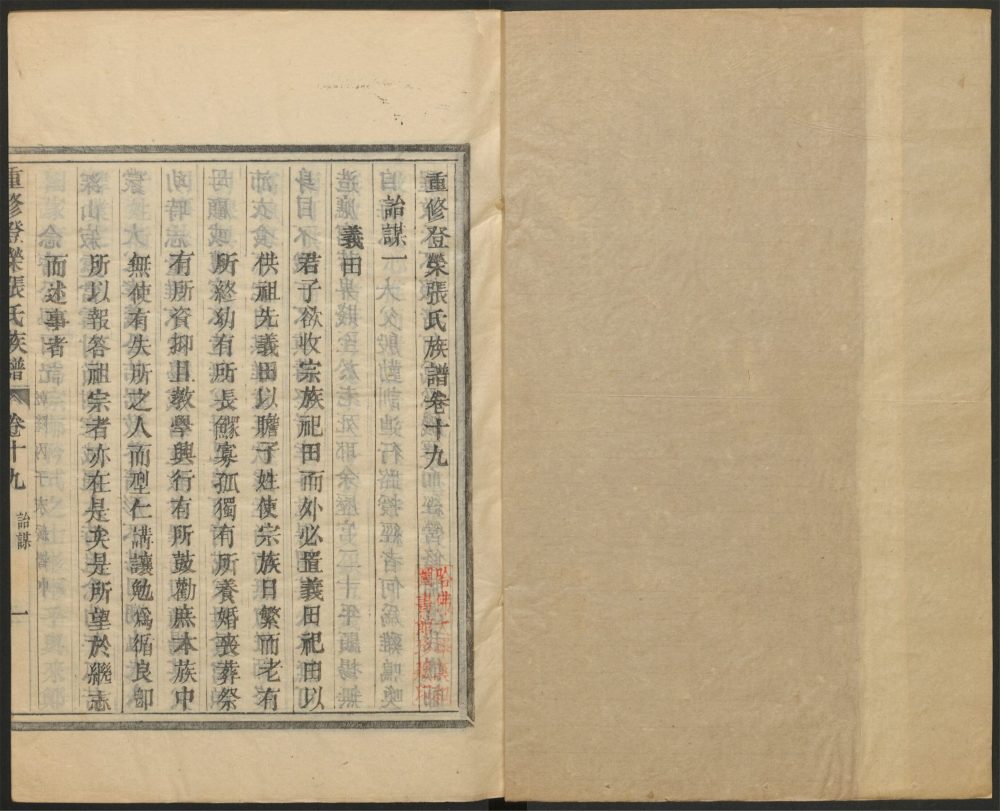 重修登榮張氏族譜卷十九
詒謀一
義田
君子欲收宗族祀田而外必置義田祀田以
供祖先義田以贍子姓使宗族日繁而老有
所終幼有所長鰥寡孤獨有所養婚喪葬祭
有所資抑且教學興行有所鼓勸庶本族中
無使有失所之人而型仁講讓勉爲循良卽
所以報答祖宗者亦在是矣是所望於繼志
而述事者
重修登榮張氏族譜
卷十九
詒謀
一